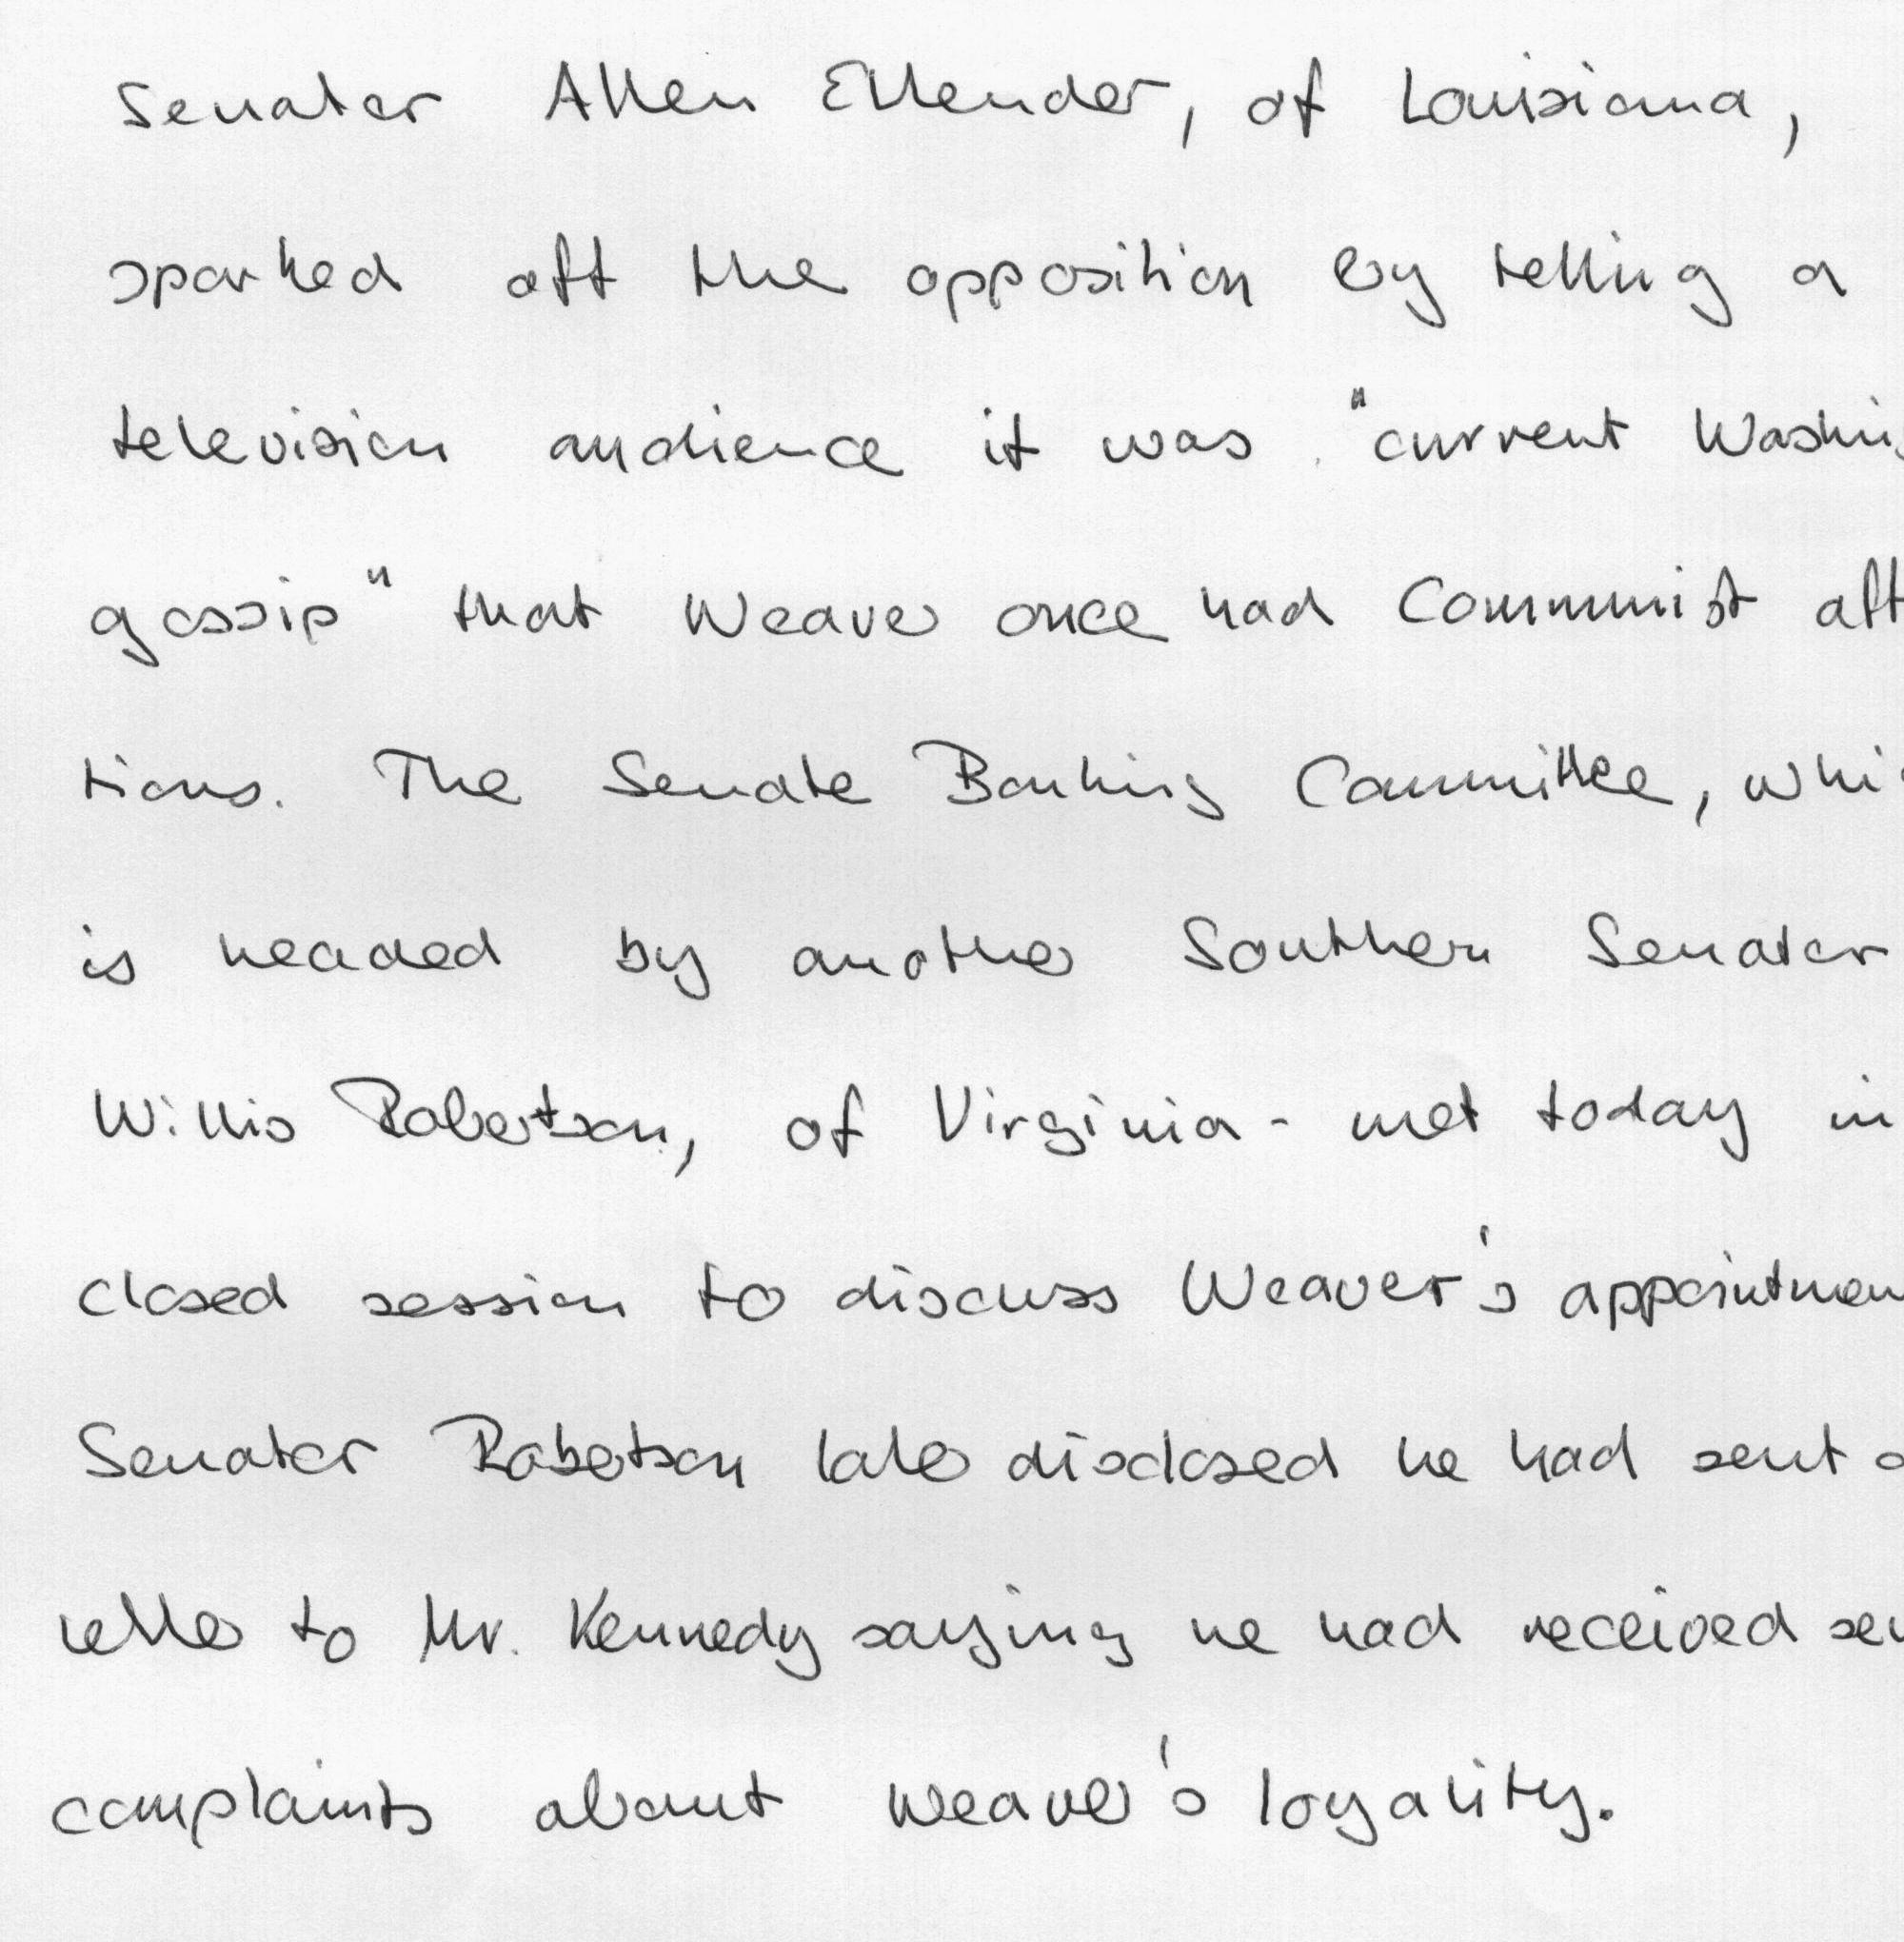 Senator Allen Ellender, of Louisiana,
sparked off the opposition by telling a
television audience it was "current Washing
gossip" that Weaver once had Communist aff
tions. The Senate Banking Committee, whi
is headed by another Southern Senator
Willis Robertson, of Virginia - met today in
closed session to discuss Weaver's appointmen
Senator Robertson later disclosed he had sent a
letter to Mr. Kennedy saying he had received sev
complaints about Weaver's loyality.